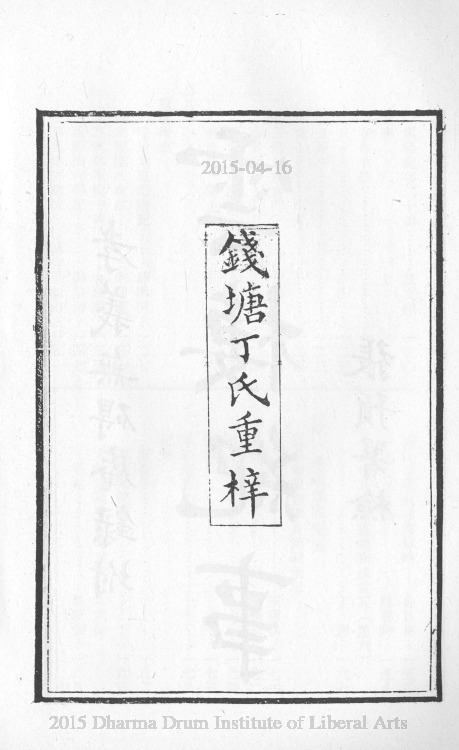 2015-04-16
錢塘丁氏重梓
2015 Dharma Drum Institute of Liberal Arts